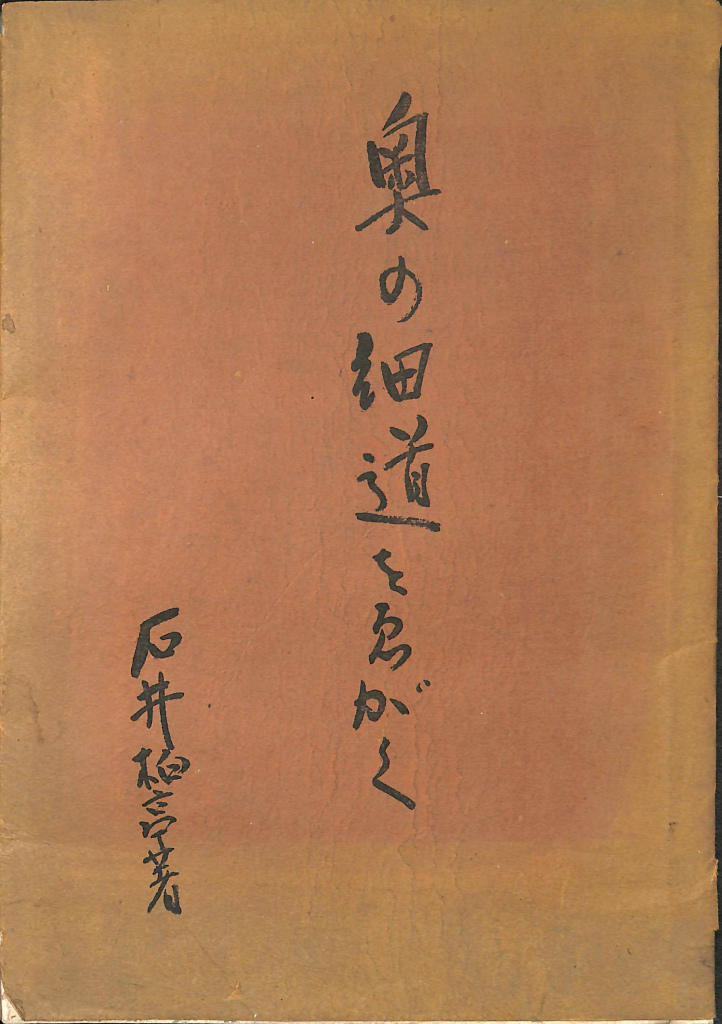 奥の細道をゑがく
石井柏亭著